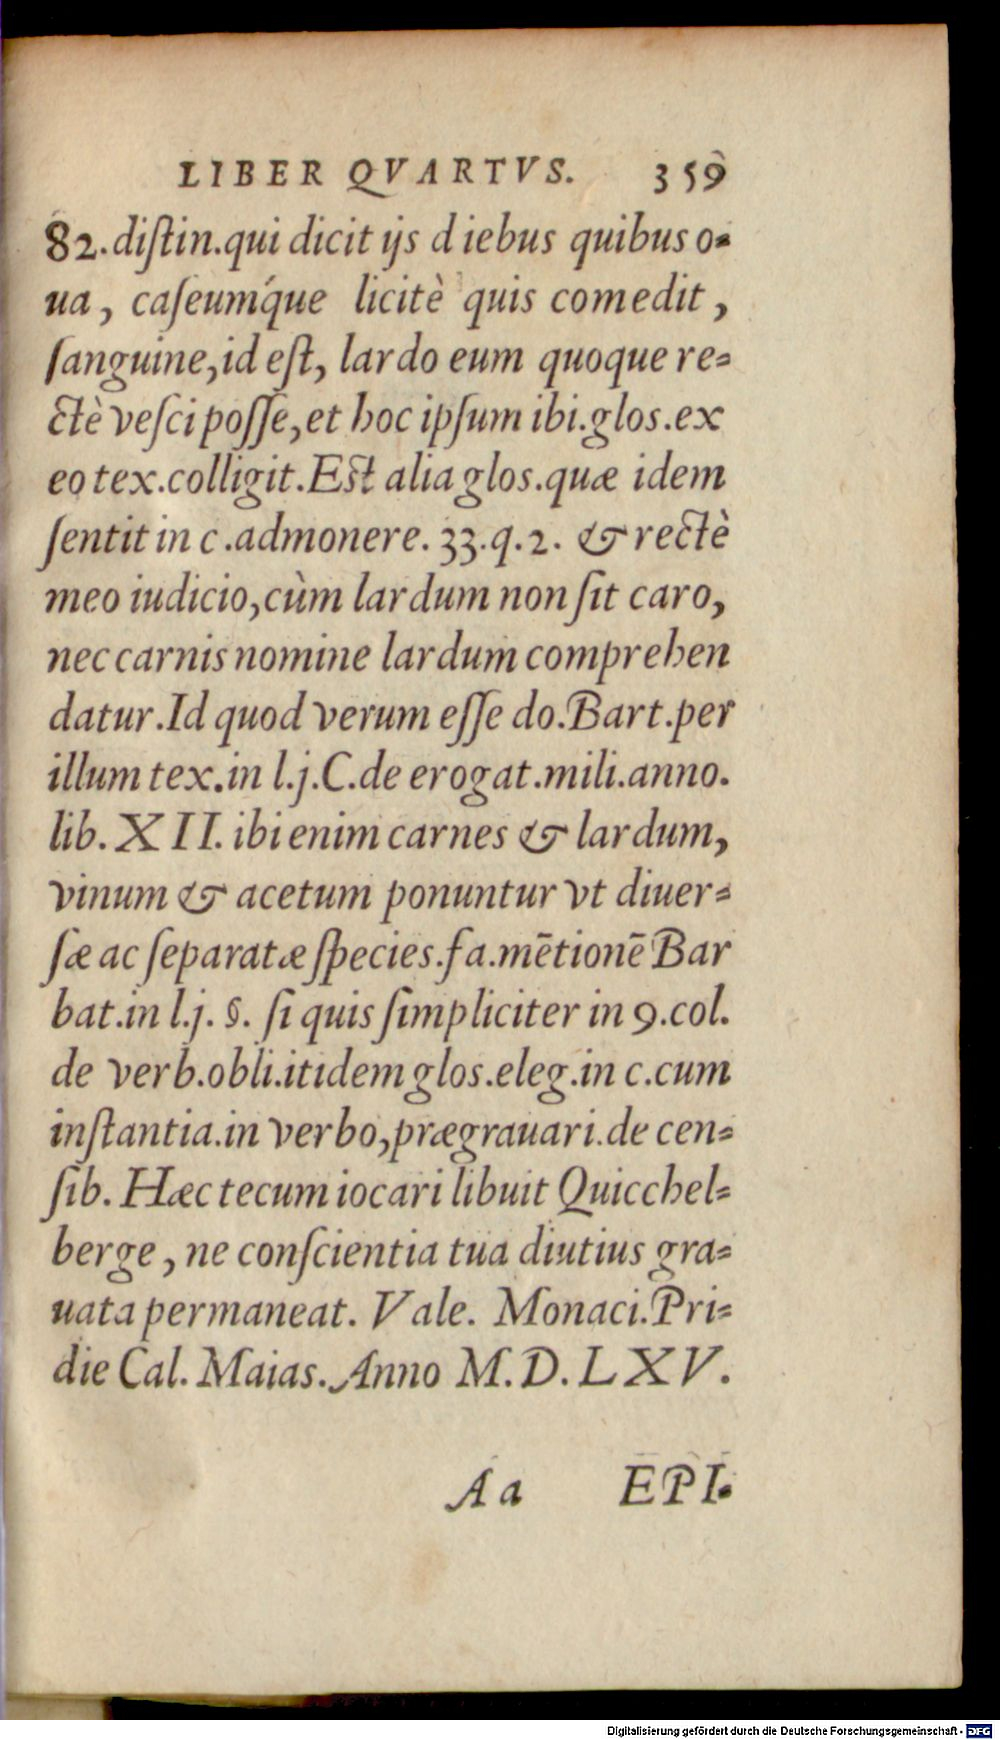 LIBER QVARTVS. 359
82. diſtin. qui dicit ijs diebus quibus o-
ua, caſeumq́ue licitè quis comedit,
ſanguine, id eſt, lardo eum quoque re-
ctè veſci poſſe, et hoc ipſum ibi. glos. ex
eo tex. colligit. Est alia glos. quæ idem
ſentit in c. admonere. 33. q. 2. & rectè
meo iudicio, cùm lardum non ſit caro,
nec carnis nomine lardum comprehen
datur. Id quod verum eſſe do. Bart. per
illum tex. in l. j. C. de erogat. mili. anno.
lib. XII. ibi enim carnes & lardum,
vinum & acetum ponuntur vt diuer-
ſæ ac ſeparatæ ſpecies. fa. mētionē Bar
bat. in l. j. §. ſi quis ſimpliciter in 9. col.
de verb. obli. itidem glos. eleg. in c. cum
inſtantia. in verbo, prægrauari. de cen-
ſib. Hæc tecum iocari libuit Quicchel-
berge, ne conſcientia tua diutius gra-
uata permaneat. Vale. Monaci. Pri-
die Cal. Maias. Anno M. D. LXV.
Aa EPI-
Digitalisierung gefördert durch die Deutsche Forschungsgemeinschaft - DFG